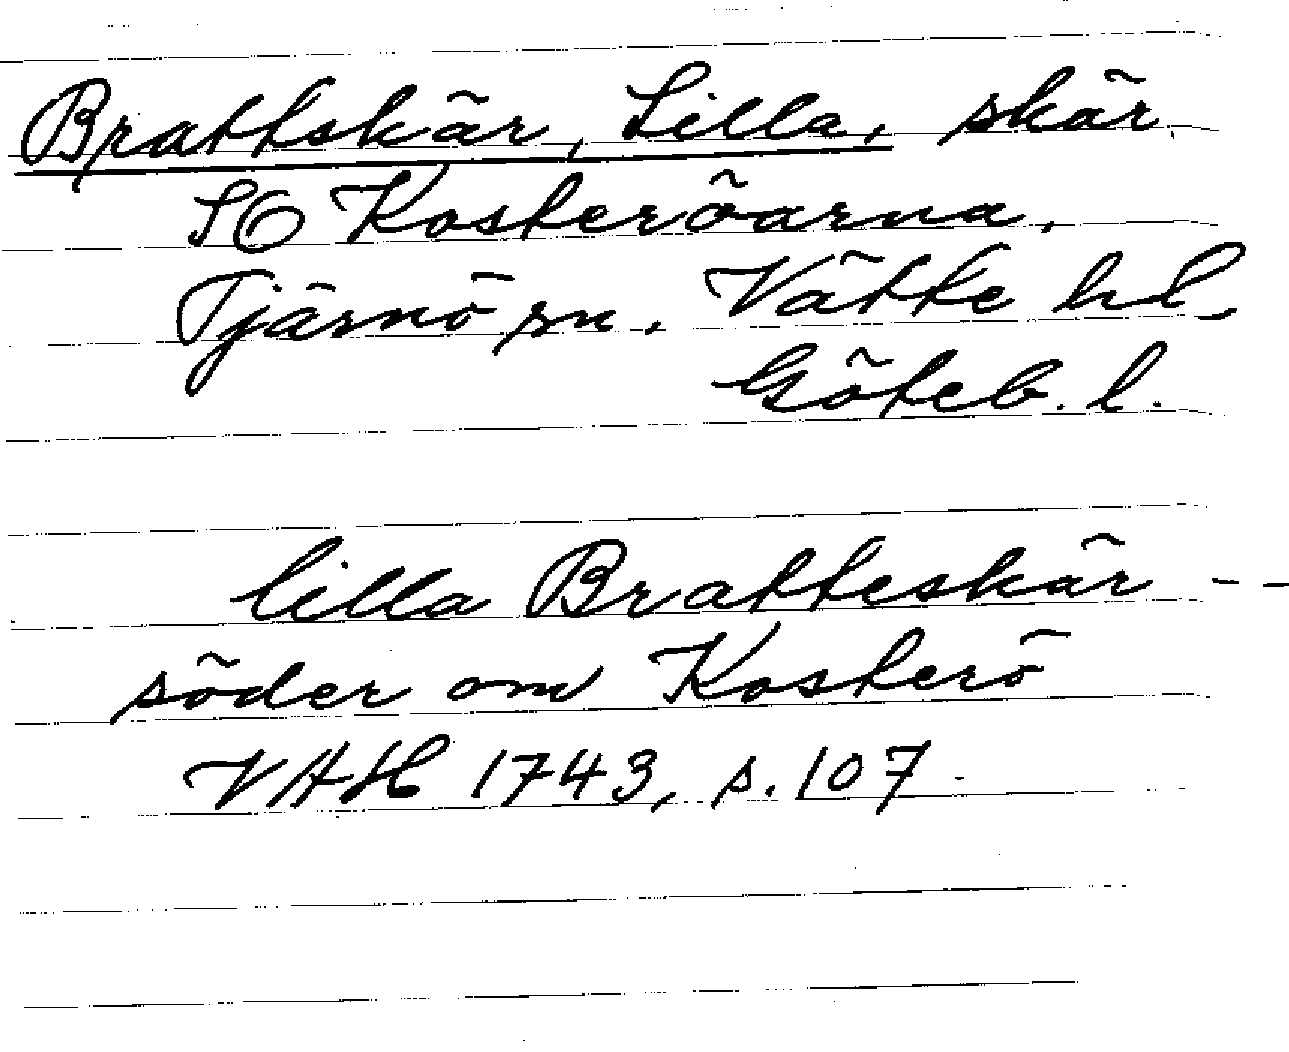 Brattskär, Lilla, skär
SO Kosteröarna.
Tjärnö sn. Vätte hd.
Göteb. l.
lilla Bratteskär --
söder om Kosterö
VAH 1743, s. 107